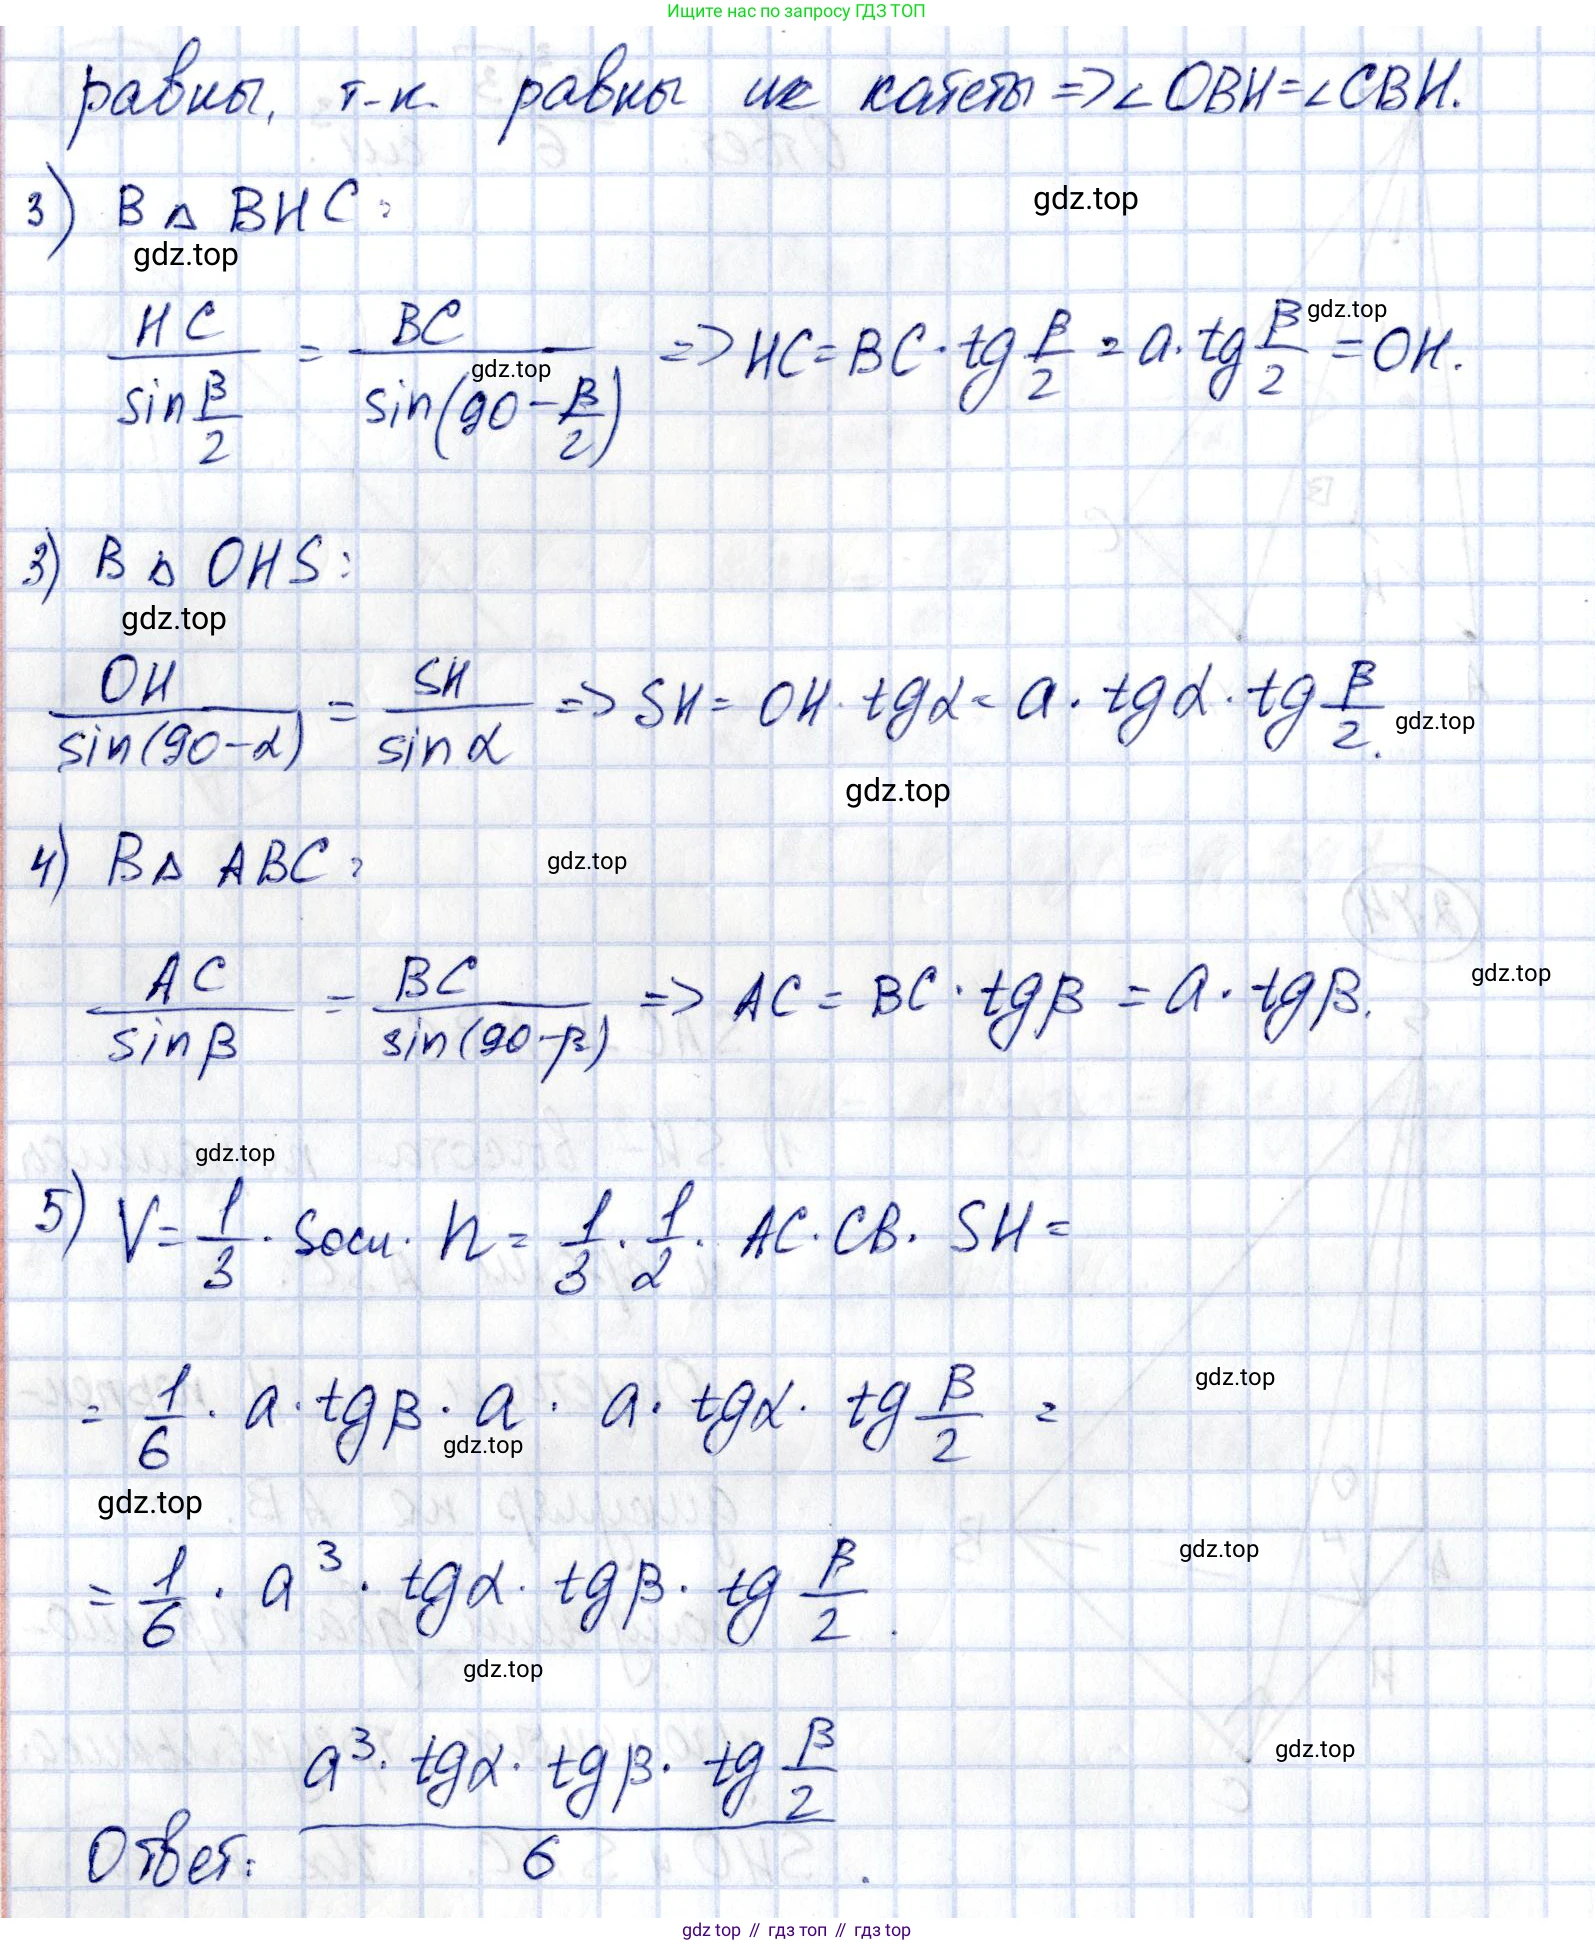 Ищите нас по запросу ГДЗ ТОП
равны, т-к. равны их катеты => ∠OBH = ∠CBH.
3) В △ BHC:
gdz.top
gdz.top
HC / sin β/2 = BC / sin(90 - β/2) => HC = BC · tg β/2 = a · tg β/2 = OH.
gdz.top
gdz.top
3) В △ OHS:
gdz.top
OH / sin(90-α) = SH / sin α => SH = OH · tg α = a · tg α · tg β/2.
gdz.top
gdz.top
4) В △ ABC:
gdz.top
AC / sin β = BC / sin(90-β) => AC = BC · tg β = a · tg β.
gdz.top
gdz.top
5) V = 1/3 · Sосн · h = 1/3 · 1/2 · AC · CB · SH =
= 1/6 · a · tg β · a · a · tg α · tg β/2 =
gdz.top
gdz.top
gdz.top
= 1/6 · a³ · tg α · tg β · tg β/2.
gdz.top
gdz.top
Ответ: a³ · tg α · tg β · tg β/2 / 6.
gdz.top
gdz.top // гдз топ // gdz.top